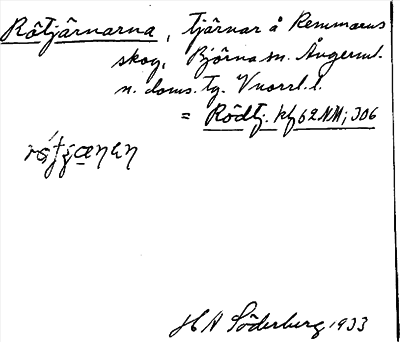 Rötjärnarna, tjärnar å Remmarns
skog, Björna sn. Ångerml.
n. doms. tg. Vnorrl. l.
= Rödtj. kf 62 NM; 306
H A Söderberg 1933